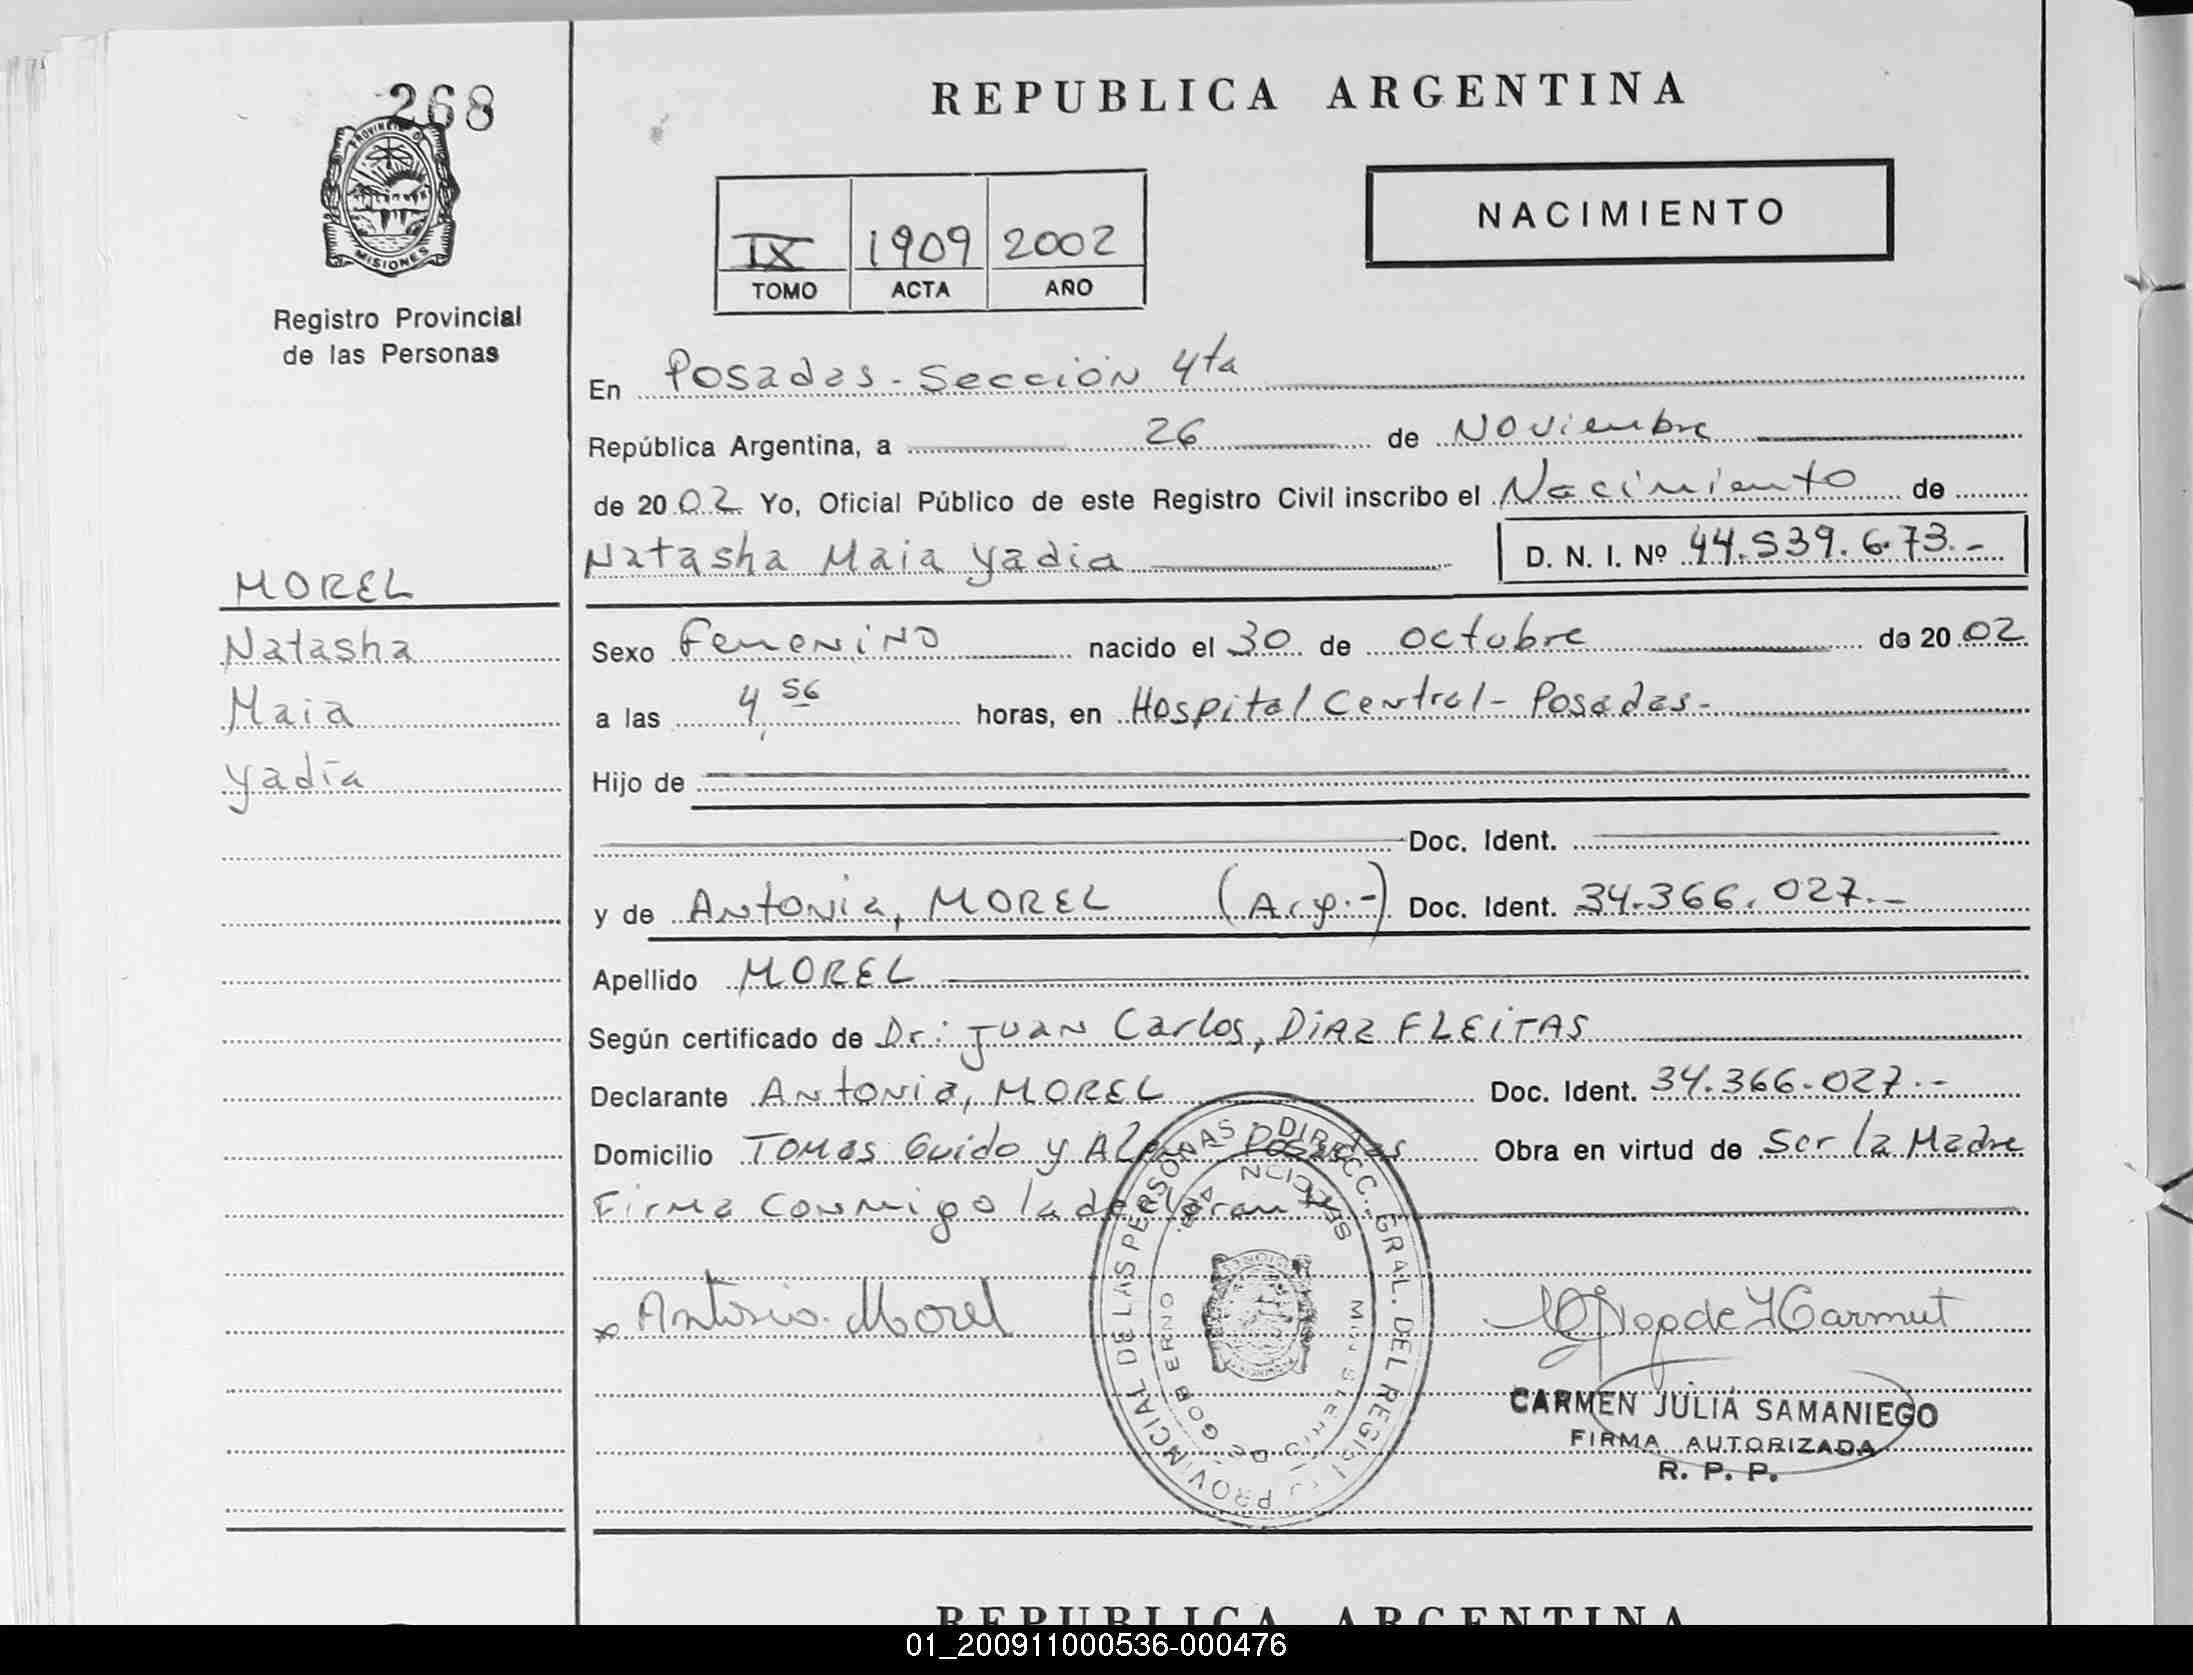 268
REPUBLICA ARGENTINA
PROVINCIA DE
MISIONES
Registro Provincial
de las Personas
IX 1909 2002
TOMO ACTA AÑO
NACIMIENTO
En Posadas - Sección 4ta
República Argentina, a 26 de Noviembre
de 20 02 Yo, Oficial Público de este Registro Civil inscribo el Nacimiento de
Natasha Maia Yadia D. N. I. Nº 44.539.673.-
MOREL
Natasha
Maia
Yadia
Sexo Femenino nacido el 30 de octubre de 20 02
a las 4,56 horas, en Hospital Central - Posadas -
Hijo de
Doc. Ident.
y de Antonia, MOREL (Arg.-) Doc. Ident. 34.366.027.-
Apellido MOREL
Según certificado de Dr: Juan Carlos, DIAZ FLEITAS
Declarante Antonia, MOREL Doc. Ident. 34.366.027.-
Domicilio Tomas Guido y Posadas Obra en virtud de Ser la Madre
Firma Conmigo la declaran
x Antonia Morel
DIRECC. GRAL. DEL REGISTRO PROVINCIAL DE LAS PERSONAS
MINISTERIO DE GOBIERNO
SECCION 4a
CARMEN JULIA SAMANIEGO
FIRMA AUTORIZADA
R. P. P.
REPUBLICA ARGENTINA
01_200911000536-000476